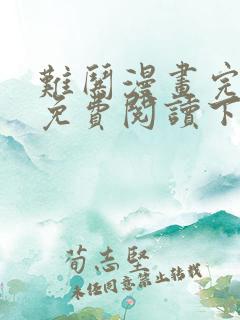 難鬪漫畫完
免費閱讀下
荀志堅
未經同意禁止轉載